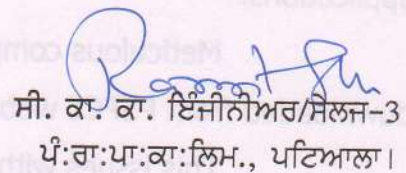 ਸੀ. ਕਾ. ਕਾ. ਇੰਜੀਨੀਅਰ/ਸੈਲਜ-3
ਪੰ:ਰਾ:ਪਾ:ਕਾ:ਲਿਮ., ਪਟਿਆਲਾ।